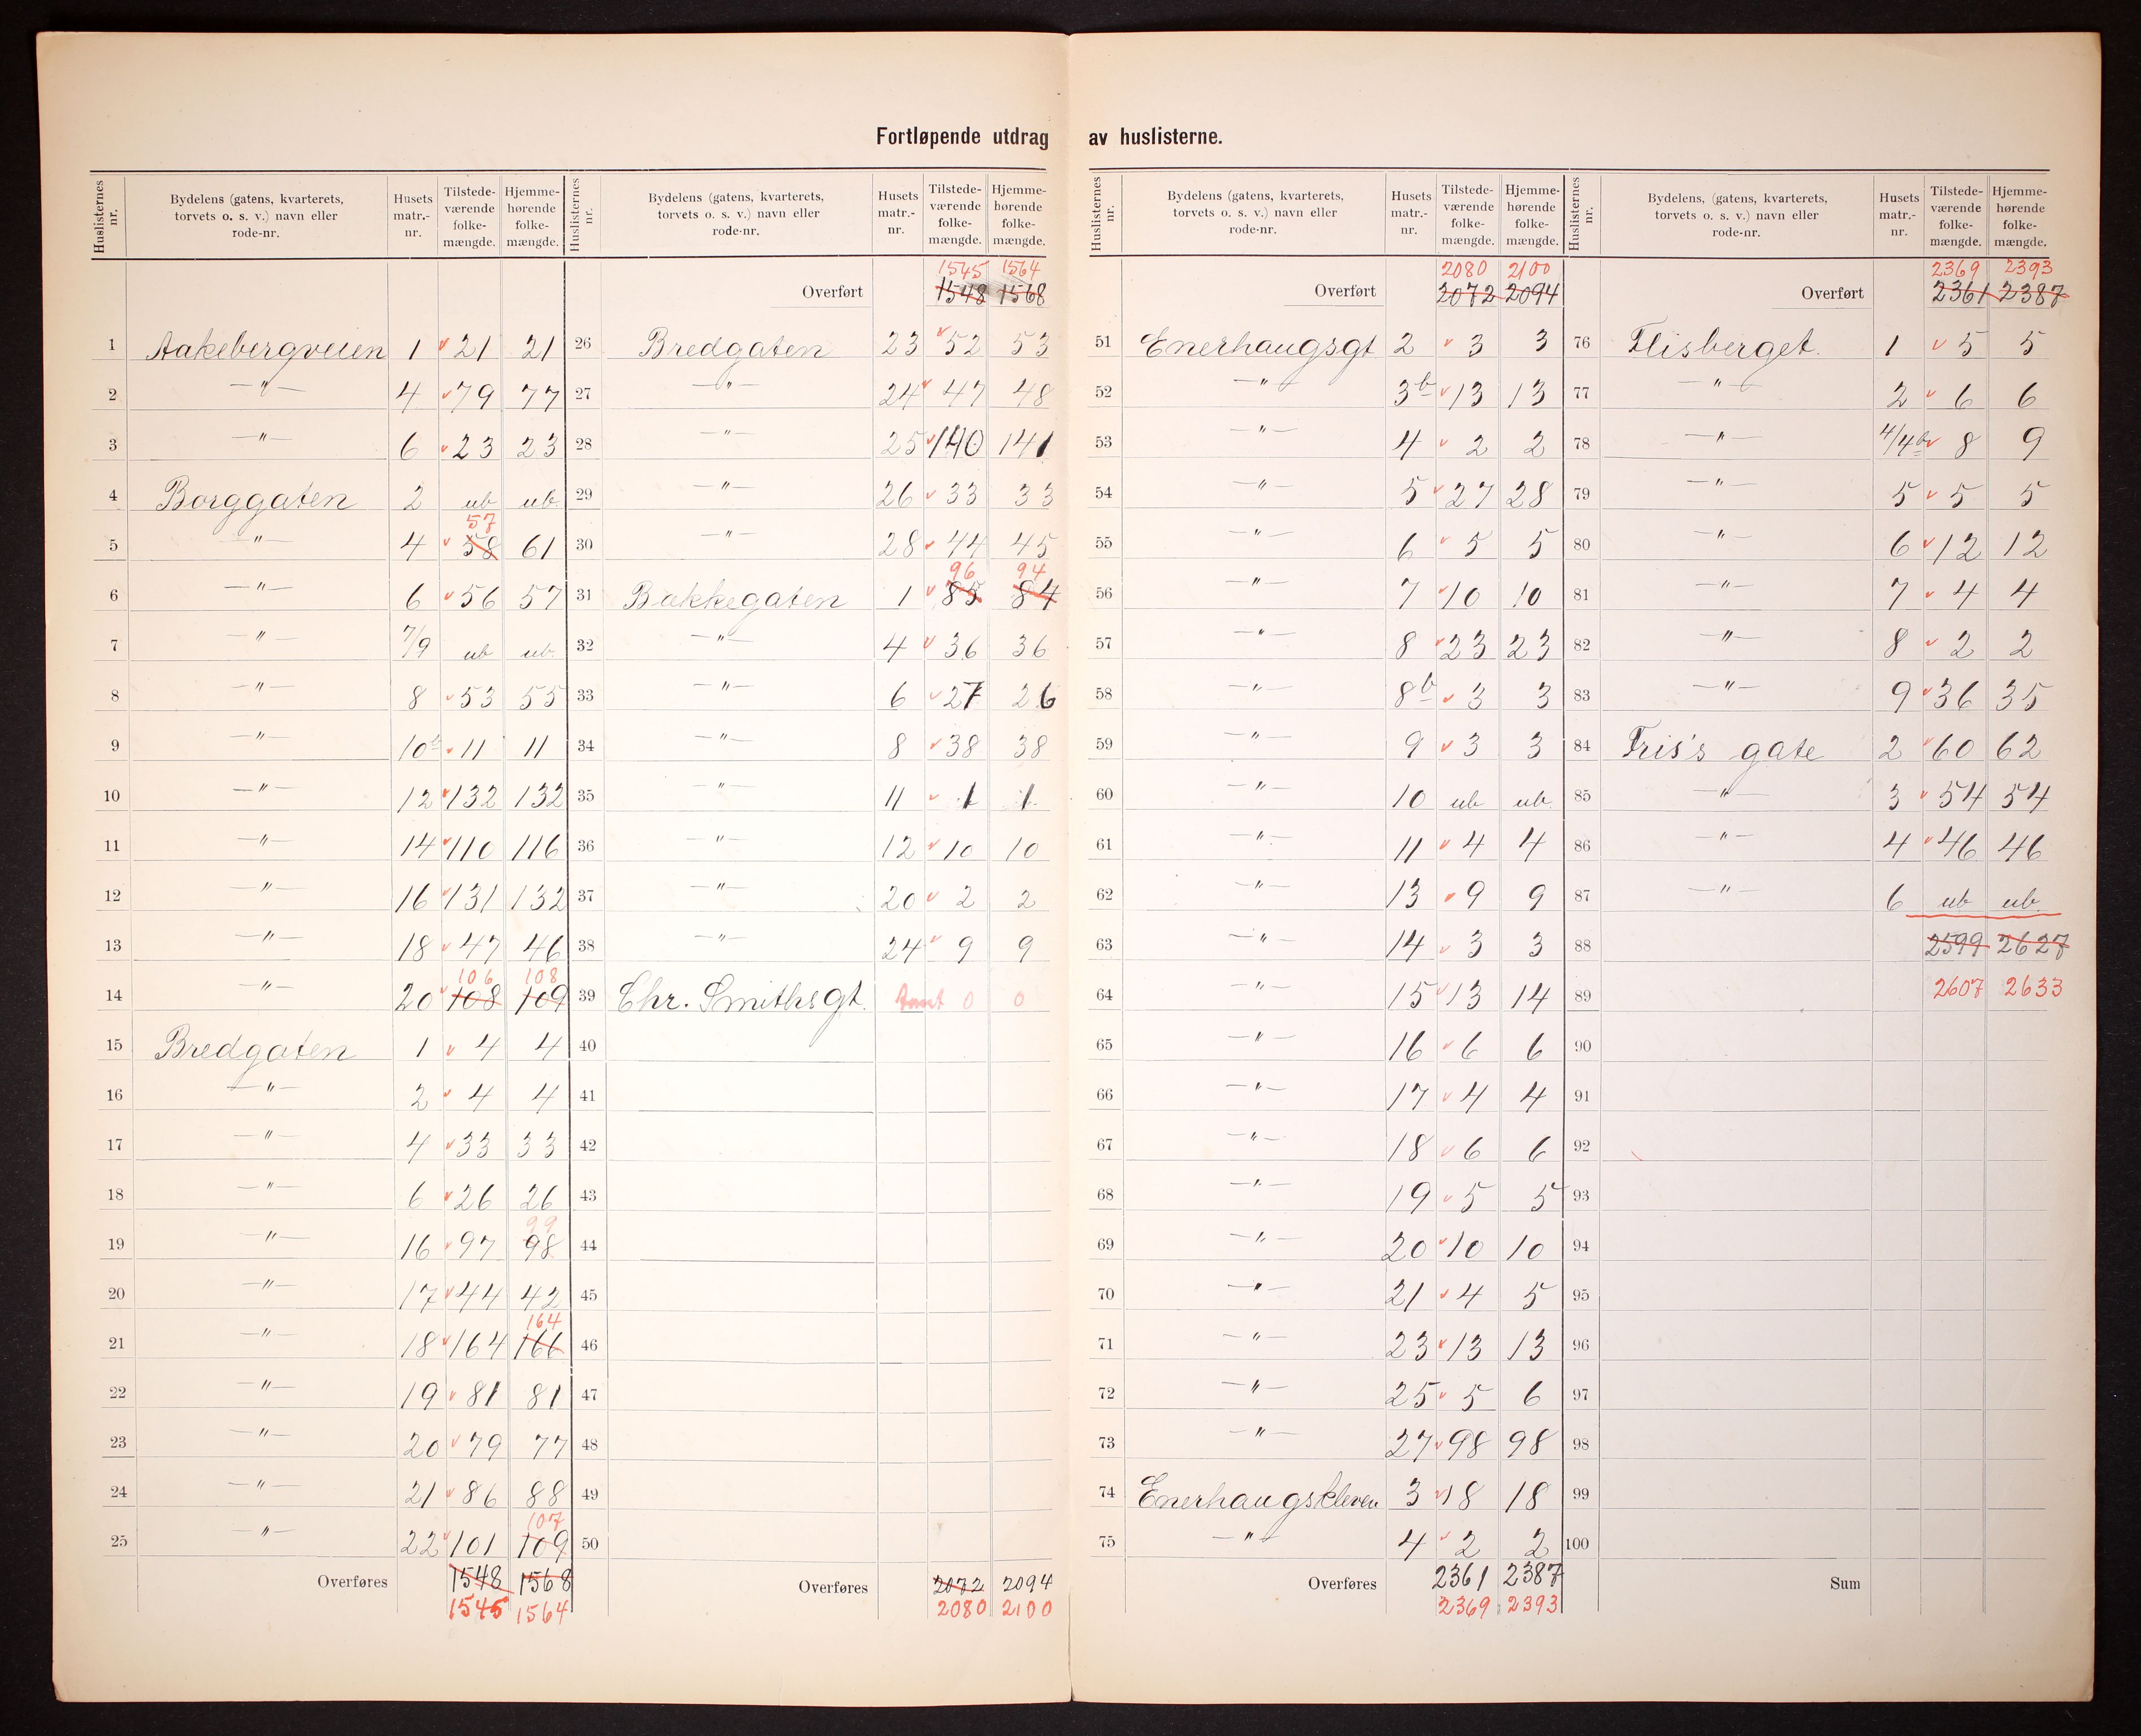 Fortløpende utdrag av huslisterne.
Huslisternes nr. | Bydelens (gatens, kvarterets, torvets o. s. v.) navn eller rode-nr. | Husets matr.-nr. | Tilstede-værende folke-mængde. | Hjemme-hørende folke-mængde.
1 Aakebergveien 1 21 21
2 —"— 4 79 77
3 —"— 6 23 23
4 Borggaten 2 ub ub
57
5 —"— 4 58 61
6 —"— 6 56 57
7 —"— 7/9 ub ub.
8 —"— 8 53 55
9 —"— 10b 11 11
10 —"— 12 132 132
11 —"— 14 110 116
12 —"— 16 131 132
13 —"— 18 47 46
106 108
14 —"— 20 108 109
15 Bredgaten 1 4 4
16 —"— 2 4 4
17 —"— 4 33 33
18 —"— 6 26 26
99
19 —"— 16 97 98
20 —"— 17 44 42
164
21 —"— 18 164 166
22 —"— 19 81 81
23 —"— 20 79 77
24 —"— 21 86 88
107
25 —"— 22 101 109
Overføres 1548 1568
1545 1564
Huslisternes nr. | Bydelens (gatens, kvarterets, torvets o. s. v.) navn eller rode-nr. | Husets matr.-nr. | Tilstede-værende folke-mængde. | Hjemme-hørende folke-mængde.
1545 1564
Overført 1548 1568
26 Bredgaten 23 52 53
27 —"— 24 47 48
28 —"— 25 140 141
29 —"— 26 33 33
30 —"— 28 44 45
96 94
31 Bakkegaten 1 85 84
32 —"— 4 36 36
33 —"— 6 27 26
34 —"— 8 38 38
35 —"— 11 1 1
36 —"— 12 10 10
37 —"— 20 2 2
38 —"— 24 9 9
39 Chr. Smithsgt. 0 0
40
41
42
43
44
45
46
47
48
49
50
Overføres 2072 2094
2080 2100
Huslisternes nr. | Bydelens (gatens, kvarterets, torvets o. s. v.) navn eller rode-nr. | Husets matr.-nr. | Tilstede-værende folke-mængde. | Hjemme-hørende folke-mængde.
2080 2100
Overført 2072 2094
51 Enerhaugsgt 2 3 3
52 —"— 3b 13 13
53 —"— 4 2 2
54 —"— 5 27 28
55 —"— 6 5 5
56 —"— 7 10 10
57 —"— 8 23 23
58 —"— 8b 3 3
59 —"— 9 3 3
60 —"— 10 ub ub
61 —"— 11 4 4
62 —"— 13 9 9
63 —"— 14 3 3
64 —"— 15 13 14
65 —"— 16 6 6
66 —"— 17 4 4
67 —"— 18 6 6
68 —"— 19 5 5
69 —"— 20 10 10
70 —"— 21 4 5
71 —"— 23 13 13
72 —"— 25 5 6
73 —"— 27 98 98
74 Enerhaugskleven 3 18 18
75 —"— 4 2 2
Overføres 2361 2387
2369 2393
Huslisternes nr. | Bydelens, (gatens, kvarterets, torvets o. s. v.) navn eller rode-nr. | Husets matr.-nr. | Tilstede-værende folke-mængde. | Hjemme-hørende folke-mængde.
2369 2393
Overført 2361 2387
76 Flisberget. 1 5 5
77 —"— 2 6 6
78 —"— 4/4b 8 9
79 —"— 5 5 5
80 —"— 6 12 12
81 —"— 7 4 4
82 —"— 8 2 2
83 —"— 9 36 35
84 Friis's gate 2 60 62
85 —"— 3 54 54
86 —"— 4 46 46
87 —"— 6 ub ub.
88 2599 2627
89 2607 2633
90
91
92
93
94
95
96
97
98
99
100
Sum